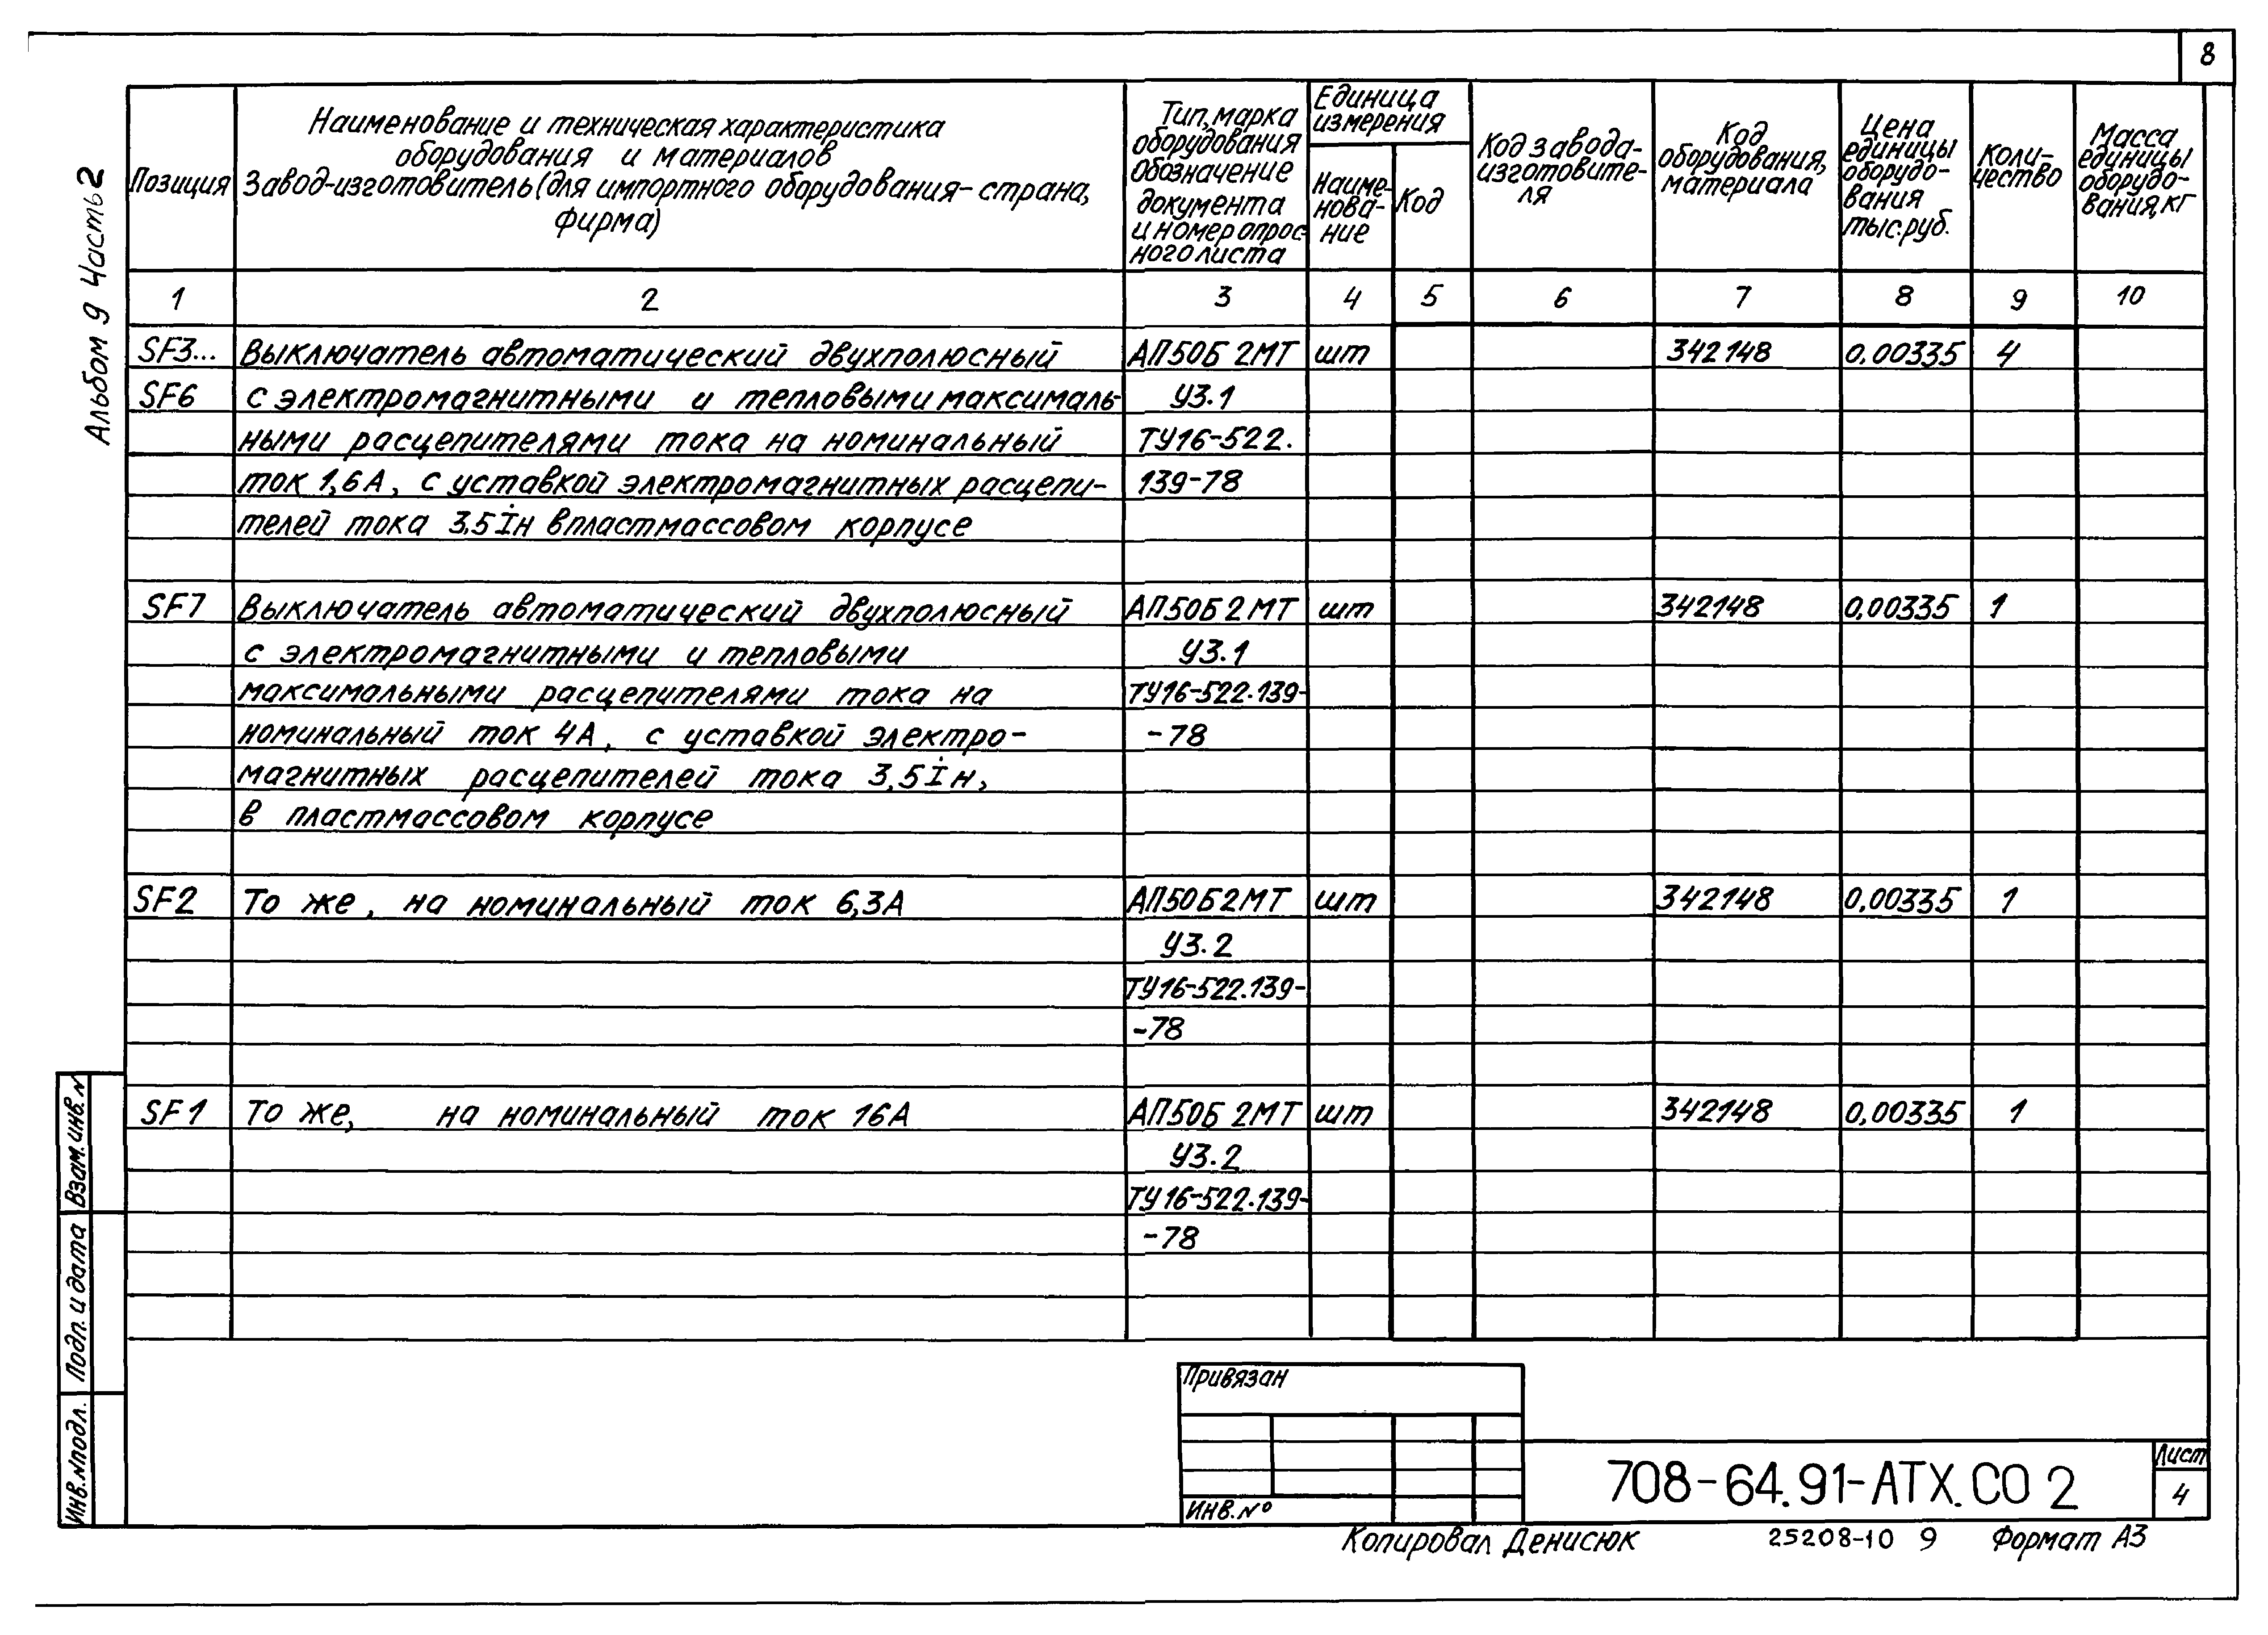 8
Альбом 9 Часть 2
Позиция
Наименование и техническая характеристика
оборудования и материалов
Завод-изготовитель (для импортного оборудования - страна,
фирма)
Тип, марка
оборудования
Обозначение
документа
и номер опрос-
ного листа
Единица
измерения
Наиме-
нова-
ние
Код
Код завода-
изготовите-
ля
Код
оборудования,
материала
Цена
единицы
оборудо-
вания
тыс.руб.
Коли-
чество
Масса
единицы
оборудо-
вания, кг
1 2 3 4 5 6 7 8 9 10
SF3... Выключатель автоматический двухполюсный АП50Б 2МТ шт 342148 0,00335 4
SF6 с электромагнитными и тепловыми максималь- У3.1
ными расцепителями тока на номинальный ТУ16-522.
ток 1,6А, с уставкой электромагнитных расцепи- 139-78
телей тока 3,5İн в пластмассовом корпусе
SF7 Выключатель автоматический двухполюсный АП50Б 2МТ шт 342148 0,00335 1
с электромагнитными и тепловыми У3.1
максимальными расцепителями тока на ТУ16-522.139-
номинальный ток 4А, с уставкой электро- -78
магнитных расцепителей тока 3,5İн,
в пластмассовом корпусе
SF2 То же, на номинальный ток 6,3А АП50Б2МТ шт 342148 0,00335 1
У3.2
ТУ16-522.139-
-78
SF1 То же, на номинальный ток 16А АП50Б 2МТ шт 342148 0,00335 1
У3.2
ТУ16-522.139-
-78
Взам. инв. N
Подп. и дата
Инв. N подл.
Привязан
Инв. №
708-64.91-АТХ.СО 2
Лист
4
Копировал Денисюк 25208-10 9 Формат А3